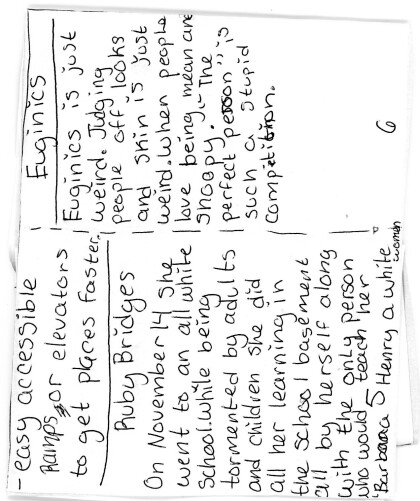 - easy accessible
Ramps or elevators
to get places faster.
Ruby Bridges
On November 14 she
went to an all white
School. While being
tormented by adults
and children she did
all her learning in
the school basement
all by herself along
with the only person
who would teach her
Barbara Henry a white
women
5
Euginics
Euginics is just
weird. Judging
people off looks
and skin is just
weird. When people
love being mean and
snoppy. "The
perfect person" is
such a stupid
competition.
6